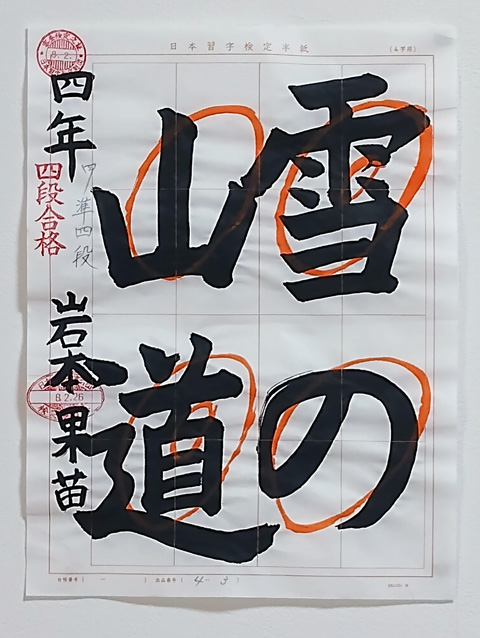 日本習字検定半紙
(4字用)
雪の
山道
四年 岩本果苗
四、準四段
四段合格
8.2.
8.2.26
4-3